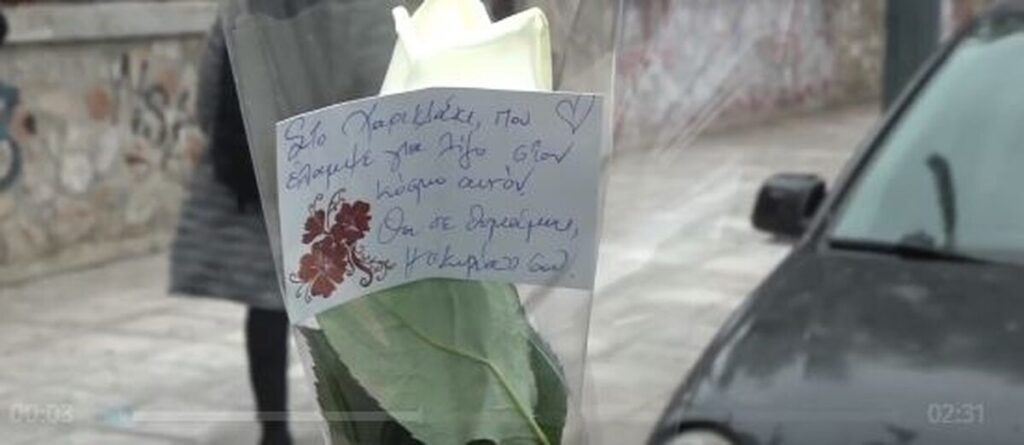 Στο Χαρικλάκι, που
έλαμψε για λίγο στον
κόσμο αυτόν
Θα σε θυμάμαι,
Η
00:03
02:31